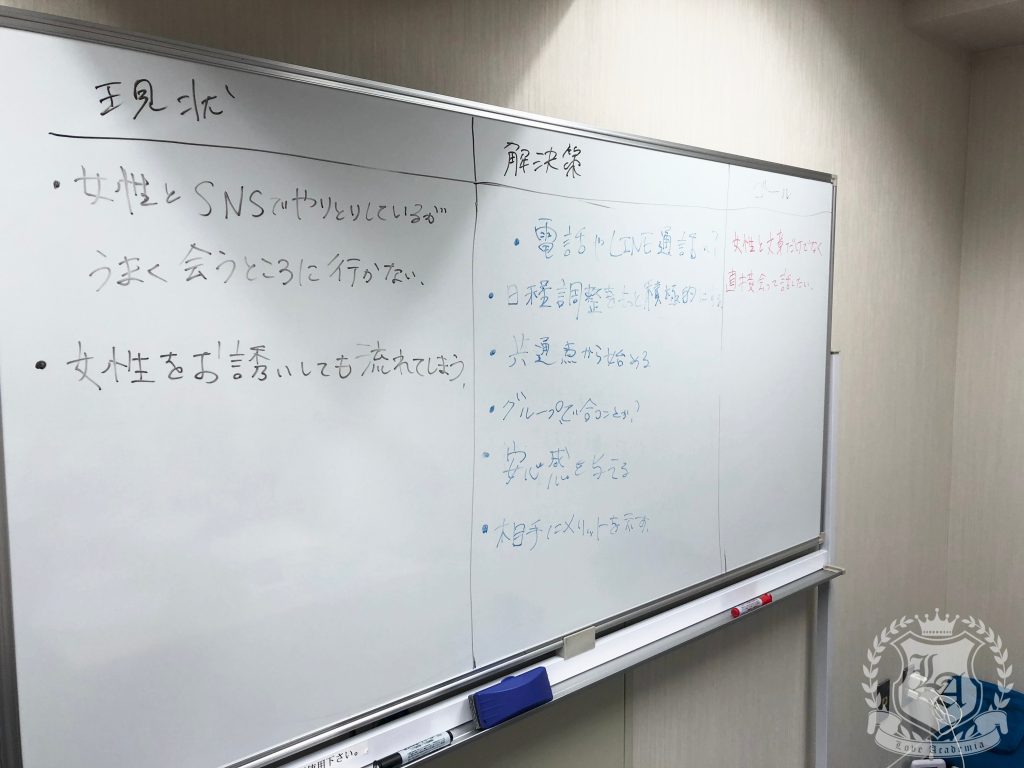 現状
・女性とSNSでやりとりしているが
うまく会うところに行かない。
・女性をお誘いしても流れてしまう。
解決策
・電話やLINE通話
・日程調整 積極的に
・共通点から始める
・グループで会うことか?
・安心感を与える
・相手にメリットを示す。
ゴール
女性と文章だけでなく
直接会って話したい。
使用下さい。
LA
Love Academia